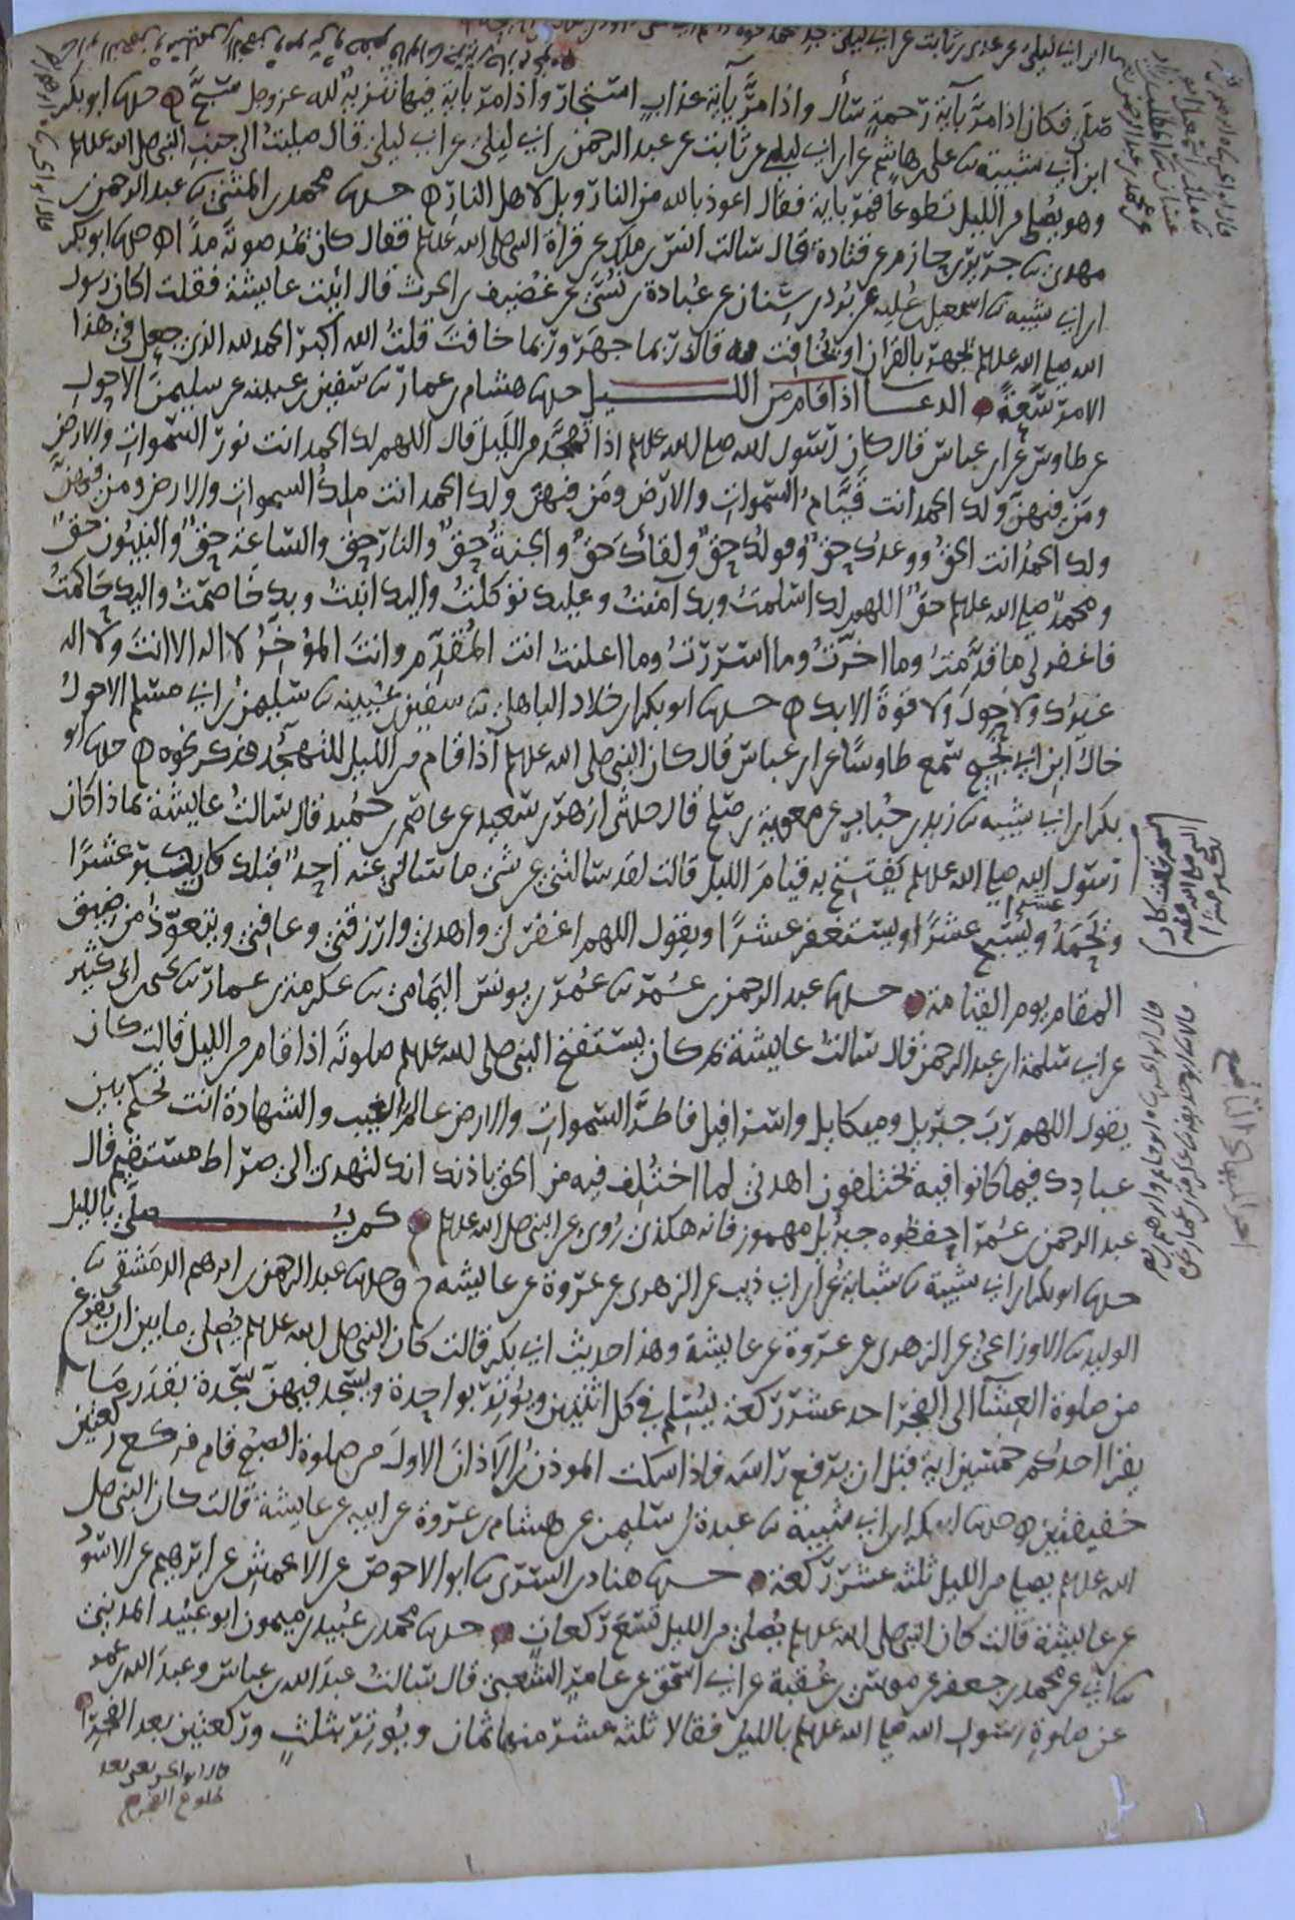 صلى فكان اذا مرَّ بآية رَحمةٍ سَأل واذا مرَّ بآية عذابٍ استجار واذا مرّ بآية فيها تنزيهٌ لله عز وجل سَبَّح حدثنا ابو بكر
ابن ابي شيبة ثنا علي بن هاشم عن ابن ابي ليلى عن ثابت عن عبد الرحمن بن ابي ليلى عن ابي ليلى قال صليت الى جنب النبي صلى الله عليه وسلم
وهو يصلي من الليل تطوعًا فمرّ بآية فقال اعوذ بالله من النار وويل لاهل النار حدثنا محمد بن المثنى ثنا عبد الرحمن بن
مهدي ثنا جرير بن حازم عن قتادة قال سَالت انس بن ملك عن قراة النبي صلى الله عليه وسلم فقال كان يمد صوته مدًّا حدثنا ابو بكر
ابن ابي شيبه ثنا اسمعيل بن عُليه عن بُرد بن سنان عن عُبادة بن نُسَيّ عن غُضيف بن الحرث قال اتيت عايشة فقلت اكان رسول
الله صلى الله عليه وسلم يجهر بالقران او يُخافِت به قالت ربما جهَرَ وربما خافتَ قلتُ الله اكبر الحمد لله الذي جعل في هذا
الامر سَعَةً الدعــا اذا قام من الليــل حدثنا هشام بن عمار ثنا سفين بن عيينه عن سليمن الاحول
عن طاوس عن ابن عباس قال كان رَسُول الله صلى الله عليه وسلم اذا تهجَّد من الليل قال اللهم لك الحمد انت نور السَّموات والارض
ومَن فيهن ولك الحمد انت قيَّامُ السَّمواتِ والارَض ومَن فيهن ولك الحمد انت ملك السموات والارض ومن فيهن
ولك الحمدُ انت الحقُّ ووعدُك حقٌّ وقولُك حقٌّ ولقاؤك حَقٌّ والجنةُ حقٌّ والنار حقٌّ والسَّاعة حقٌّ والنبيُّون حقٌّ
ومحمدٌ صلى الله عليه وسلم حقٌّ اللهم لك اسلَمتُ وبك آمَنتُ وعليك توكلتُ واليك انبتُ وبك خاصمتُ واليك حَاكمتُ
فاغفر لي ما قدَّمتُ وما اخرتُ وما اسْرَرتُ وما اعلنتُ انت المُقَدِّم وانت المؤخِّرُ لا اله الا انت ولا اله
غيرُك ولا حولَ ولا قوةَ الا بك حدثنا ابو بكر بن خلاد الباهلي ثنا سفين بن عيينه ثنا سليمن بن ابي مسلم الاحولُ
خال ابن ابي نجيح سمع طاوسًا عن ابن عباس قال كان النبي صلى الله عليه وسلم اذا قام من الليل للتهجُّد فذكر نحوه حدثنا ابو
بكر بن ابي شيبه ثنا زيد بن حُبابٍ عن معوية بن صلح قال حدثني ازهر بن سَعيد عن عاصم بن حُميد قال سَالتُ عايشةَ بماذا كان
رَسُول الله صلى الله عليه وسلم يَفتتح به قيامَ الليل قالت لقد سَالتني عن شي ما سَالني عنه احدٌ قبلك كان يكبّر عشرًا
ويَحمَدُ عشرا ويُسَبّح عشرًا ويستغفر عشرًا ويقول اللهم اغفر لي واهدني وارزقني وعافني ويتعوّذ من ضيق
المقام يوم القيامة حدثنا عبد الرحمن بن عُمَر ثنا عُمَر بن يونس اليمامي ثنا عكرمة بن عمار ثنا يحيى بن ابي كثير
عن ابي سلمة بن عبد الرحمن قال سَالت عايشةَ بم كان يستفتح النبي صلى الله عليه وسلم صلوتَه اذا قام من الليل قالت كان
يقول اللهم رَبَّ جبريل وميكايل واسرافيل فاطرَ السموات والارض عالم الغيب والشهادة انت تحكم بين
عبادك فيما كانوا فيه يختلفون اهدني لما اختُلِف فيه من الحق باذنك انك لتهدي الى صراط مستقيم قال
عبد الرحمن بن عُمَر احفظوه جبرئيل مهموز فانه هكذى رُوي عن النبي صلى الله عليه وسلم كم يُــصلَّى بالليل
حدثنا ابو بكر بن ابي شيبة ثنا شبابةُ عن ابن ابي ذيب عن الزهري عن عروة عن عايشه ح وحدثنا عبد الرحمن بن ابرهيم الدمشقي ثنا
الوليد ثنا الاوزاعيُّ عن الزهري عن عروة عن عايشة وهذا حديث ابي بكر قالت كان النبي صلى الله عليه وسلم يُصلي ما بين ان يفرغ
من صلوة العِشآ الى الفجر احد عشر ركعة يُسَلِّم في كل اثنتين ويُوتر بواحدة ويسجد فيهن سجدة بقدر مَا
يقرا احدُكم خمسين اية قبل ان يرفع راسَه فاذا سكت الموذنُ من الاذان الاولَ من صلوة الصُبح قام فركع ركعتين
خفيفتين حدثنا ابو بكر بن ابي شيبة ثنا عبدة بن سُليمن عن هشام بن عروة عن ابيه عن عايشة قالت كان النبي صلى
الله عليه وسلم يصلي من الليل ثلثه عشر ركعة حدثنا هناد بن السري ثنا ابو الاحوص عن الاعمش عن ابرهيم عن الاسود
عن عايشة قالت كان النبي صلى الله عليه وسلم يُصلي من الليل تسع ركعاتٍ حدثنا محمد بن عُبيد بن ميمون ابو عُبيد المديني
ثنا ابي عن محمد بن جعفر عن موسى بن عُقبة عن ابي اسحق عن عامر الشعبي قال سَالتُ عبدَ الله بن عباس وعبدَ الله بن عمر
عن صلوةِ رسول الله صلى الله عليه وسلم بالليل فقالا ثلثه عشر منها ثمان ويُوتر بثلثٍ وركعتين بعد الفجر
قال ابو الحسن يعني بعد
طلوع الفجر